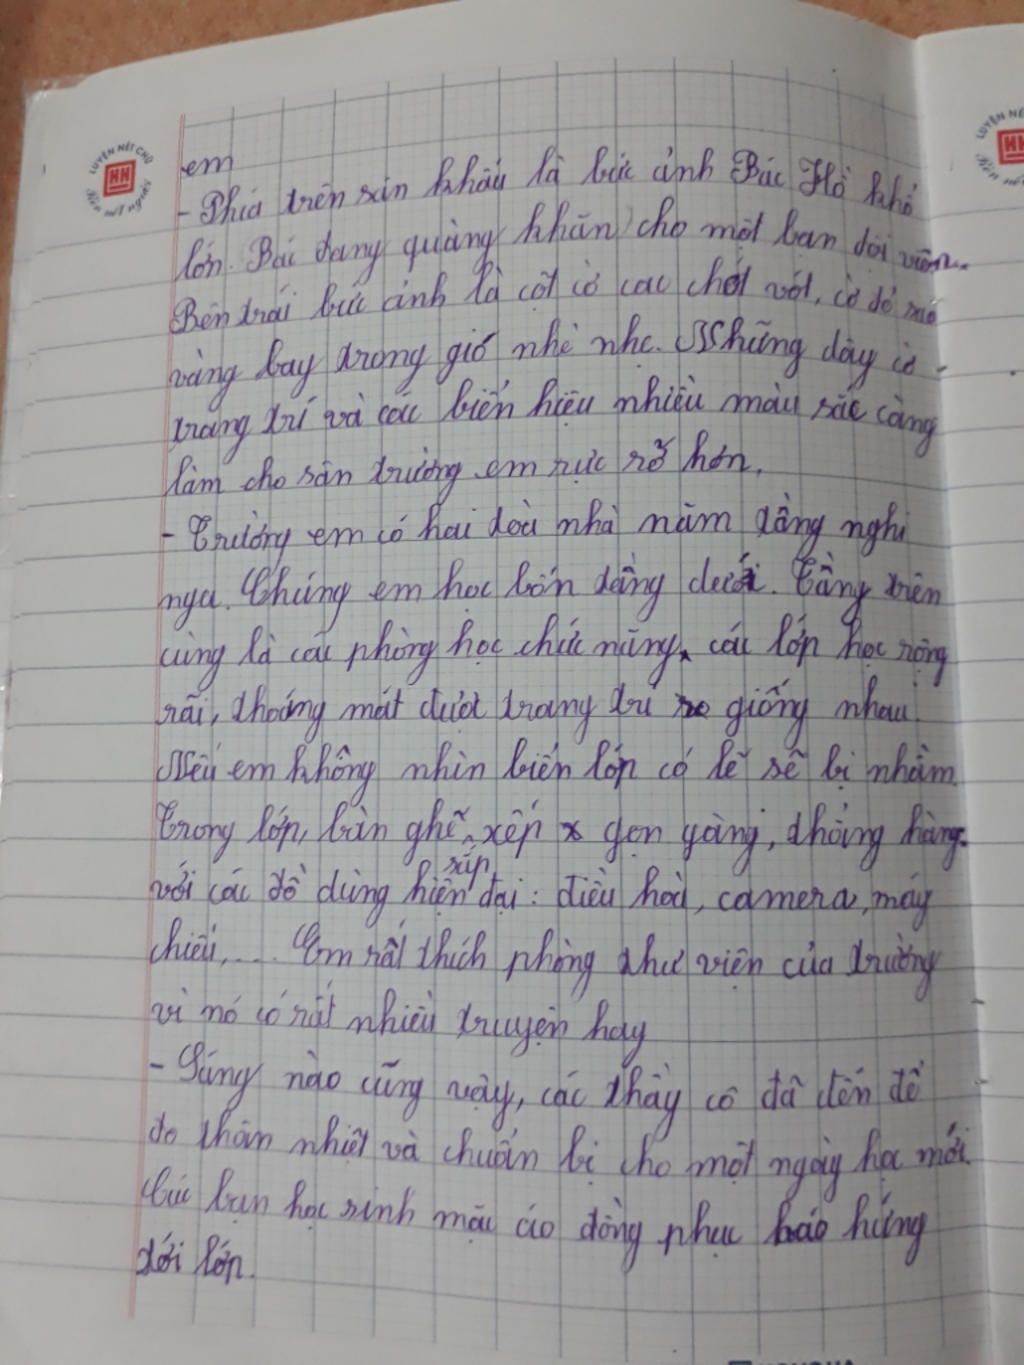 LUYỆN NÉT CHỮ
HH
Rèn nết người
em
- Phía trên sân khấu là bức ảnh Bác Hồ khổ
lớn. Bác đang quàng khăn cho một bạn đội viên.
Bên trái bức ảnh là cột cờ cao chót vót, cờ đỏ sao
vàng bay trong gió nhè nhẹ. Những dây cờ
trang trí và các biển hiệu nhiều màu sắc càng
làm cho sân trường em rực rỡ hơn.
- Trường em có hai toà nhà năm tầng nghi
nga. Chúng em học bốn tầng dưới. Tầng trên
cùng là các phòng học chức năng, các lớp học rộng
rãi, thoáng mát được trang trí giống nhau.
Nếu em không nhìn biển lớp có lẽ sẽ bị nhầm.
Trong lớp, bàn ghế sắp xếp gọn gàng, thẳng hàng
với các đồ dùng hiện đại: điều hoà, camera, máy
chiếu,.... Em rất thích phòng thư viện của trường
vì nó có rất nhiều truyện hay
- Sáng nào cũng vậy, các thầy cô đã đến để
đo thân nhiệt và chuẩn bị cho một ngày học mới.
Các bạn học sinh mặc áo đồng phục háo hứng
tới lớp.
LUYỆN NÉ
HH